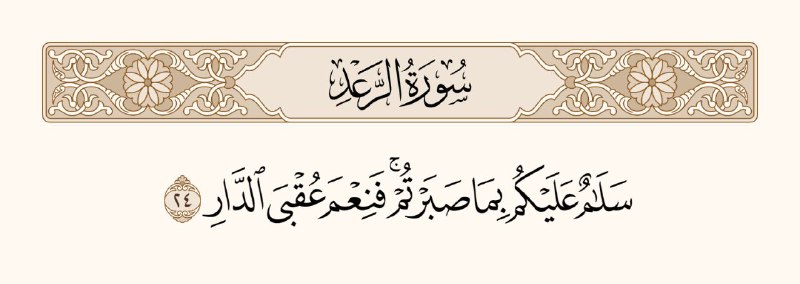 سُورَةُ الرَّعْدِ
سَلَٰمٌ عَلَيْكُم بِمَا صَبَرْتُمْ ۚ فَنِعْمَ عُقْبَى ٱلدَّارِ ٢٤